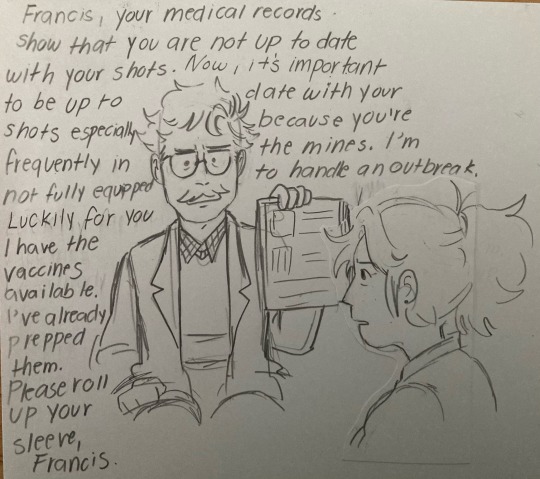 Francis, your medical records
show that you are not up to date
with your shots. Now, it's important
to be up to date with your
shots especially because you're
frequently in the mines. I'm
not fully equpped to handle an outbreak.
Luckily for you
I have the
vaccines
available.
I've already
prepped
them.
Please roll
up your
sleeve,
Francis.